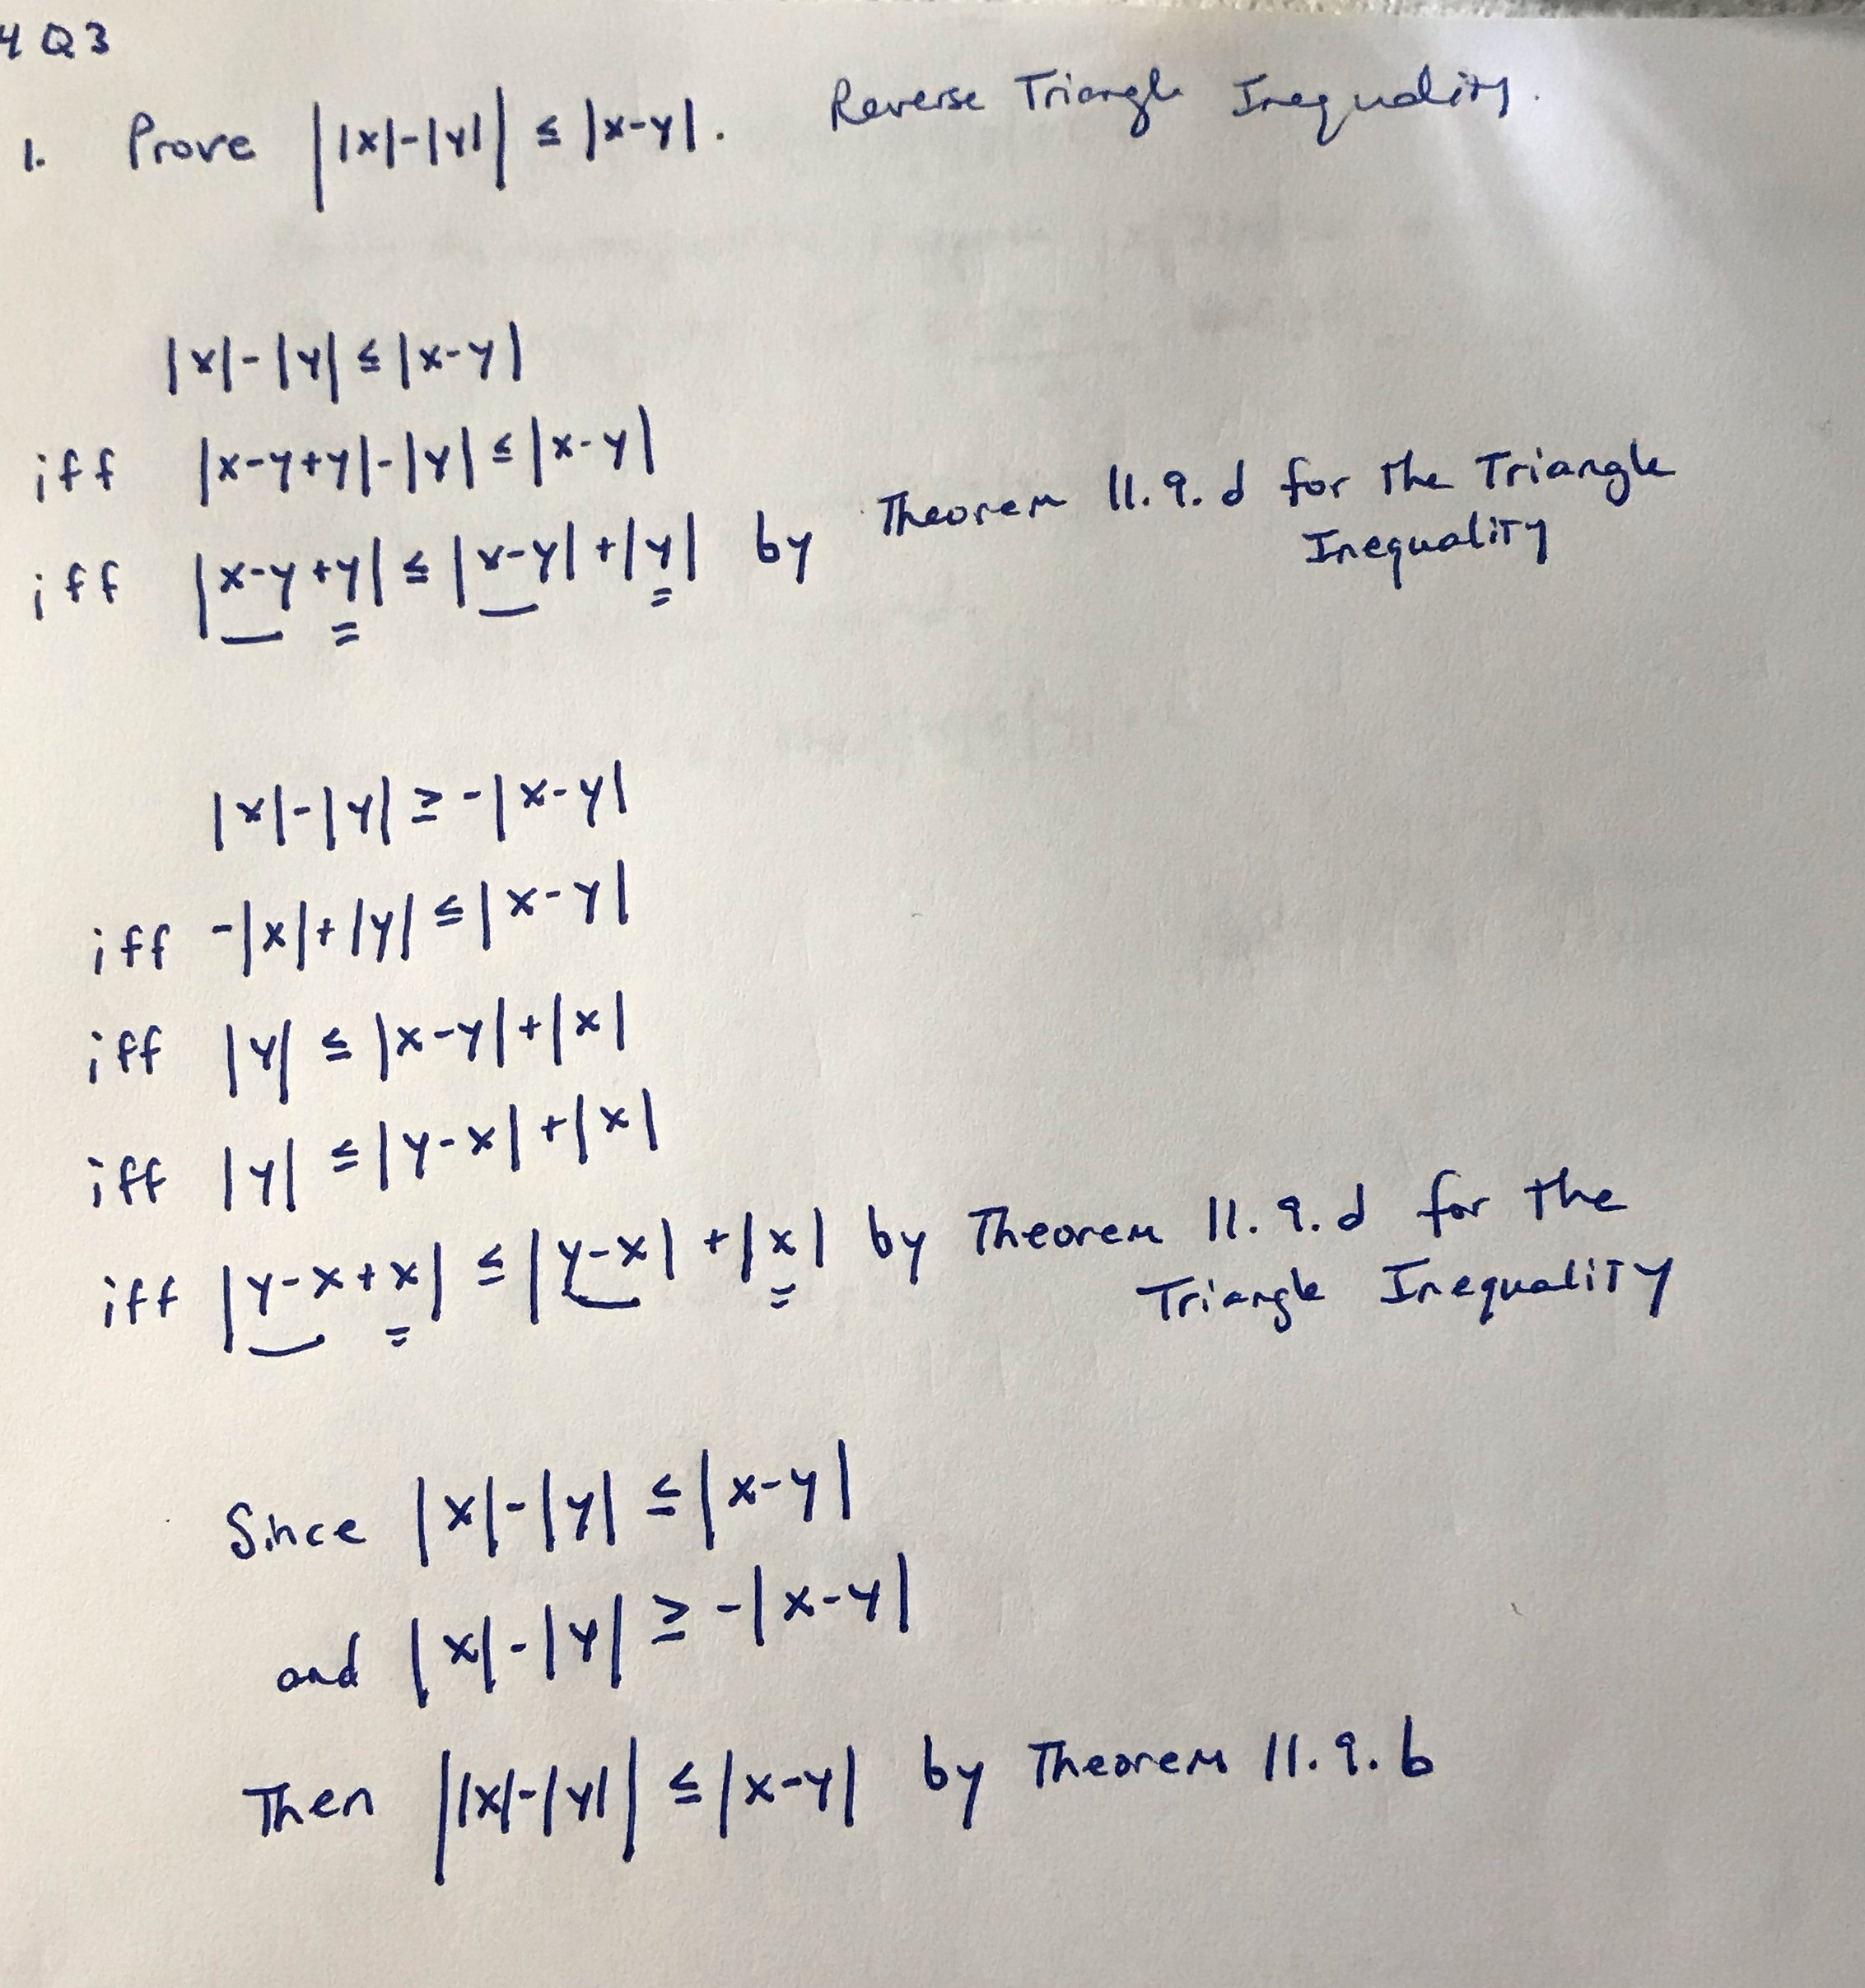 4 Q3
1. Prove ||x|-|y|| ≤ |x-y|. Reverse Triangle Inequality.
|x|-|y| ≤ |x-y|
iff |x-y+y|-|y| ≤ |x-y|
iff |x-y+y| ≤ |x-y|+|y| by Theorem 11.9.d for the Triangle
Inequality
|x|-|y| ≥ -|x-y|
iff -|x|+|y| ≤ |x-y|
iff |y| ≤ |x-y|+|x|
iff |y| ≤ |y-x|+|x|
iff |y-x+x| ≤ |y-x|+|x| by Theorem 11.9.d for the
Triangle Inequality
Since |x|-|y| ≤ |x-y|
and |x|-|y| ≥ -|x-y|
Then ||x|-|y|| ≤ |x-y| by Theorem 11.9.b